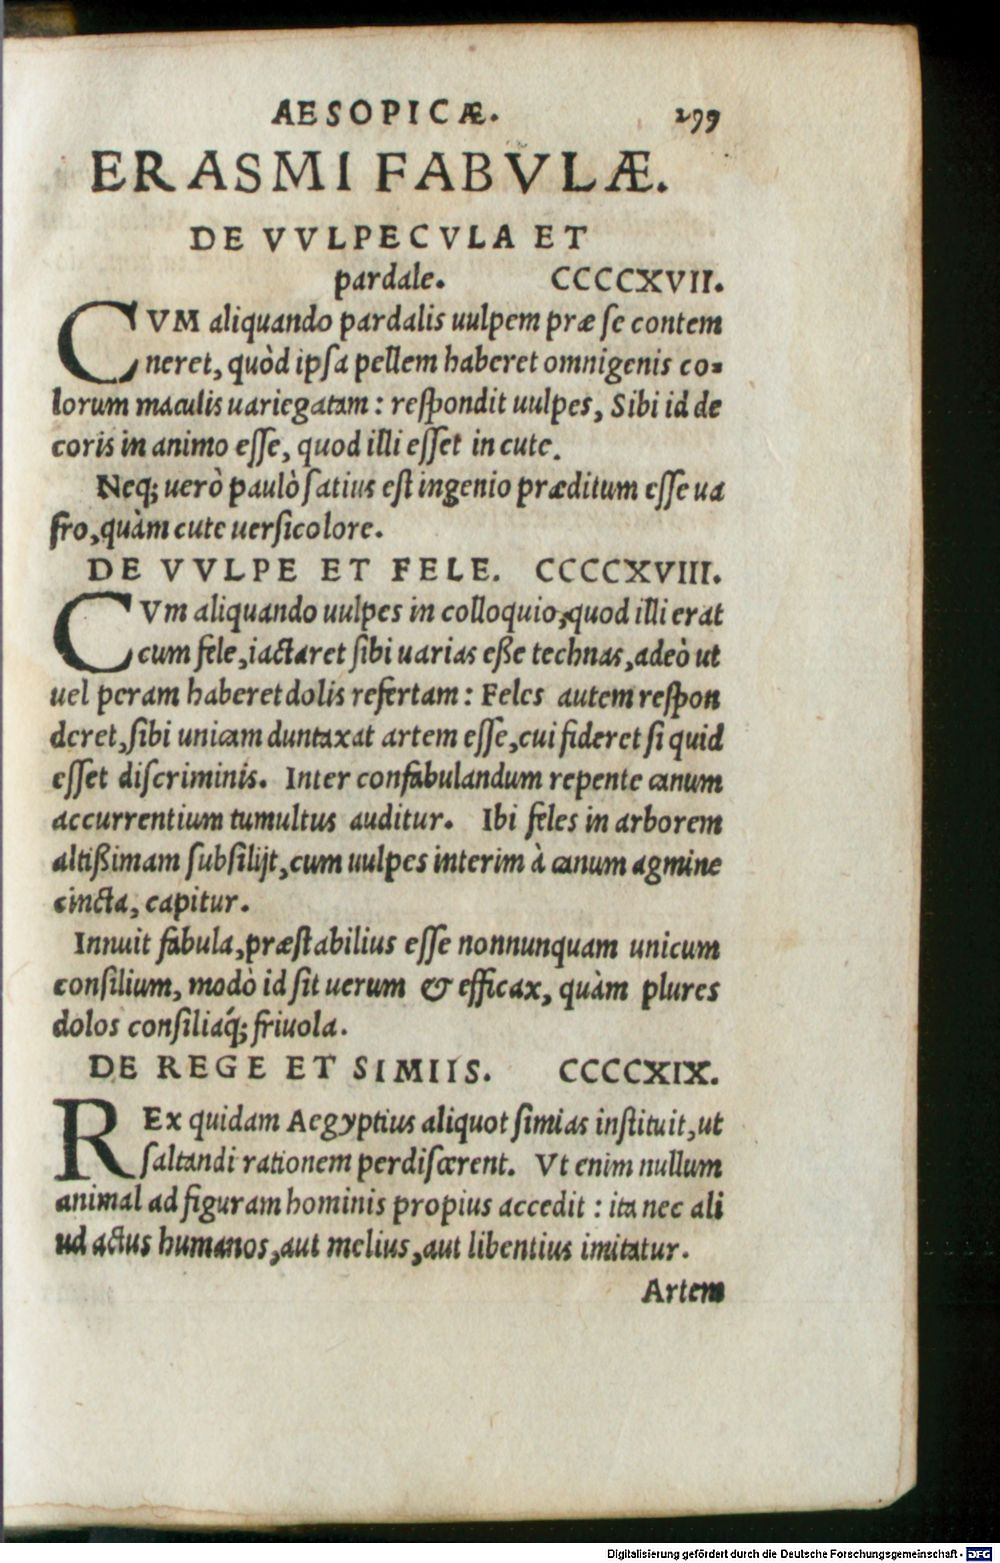 AESOPICÆ. 299
ERASMI FABVLÆ.
DE VVLPECVLA ET
pardale. CCCCXVII.
CVM aliquando pardalis uulpem præ ſe contem
neret, quòd ipſa pellem haberet omnigenis co⸗
lorum maculis uariegatam: reſpondit uulpes, Sibi id de
coris in animo eſſe, quod illi eſſet in cute.
Neq; uerò paulò ſatius eſt ingenio præditum eſſe ua
fro, quàm cute uerſicolore.
DE VVLPE ET FELE. CCCCXVIII.
CVm aliquando uulpes in colloquio, quod illi erat
cum fele, iactaret ſibi uarias eße technas, adeò ut
uel peram haberet dolis refertam: Feles autem reſpon
deret, ſibi unicam duntaxat artem eſſe, cui fideret ſi quid
eſſet diſcriminis. Inter confabulandum repente canum
accurrentium tumultus auditur. Ibi feles in arborem
altißimam ſubſilijt, cum uulpes interim à canum agmine
cincta, capitur.
Innuit fabula, præſtabilius eſſe nonnunquam unicum
conſilium, modò id ſit uerum & efficax, quàm plures
dolos conſiliáq; friuola.
DE REGE ET SIMIIS. CCCCXIX.
REx quidam Aegyptius aliquot ſimias inſtituit, ut
ſaltandi rationem perdiſcerent. Vt enim nullum
animal ad figuram hominis propius accedit: ita nec ali
ud actus humanos, aut melius, aut libentius imitatur.
Artem
Digitalisierung gefördert durch die Deutsche Forschungsgemeinschaft - DFG